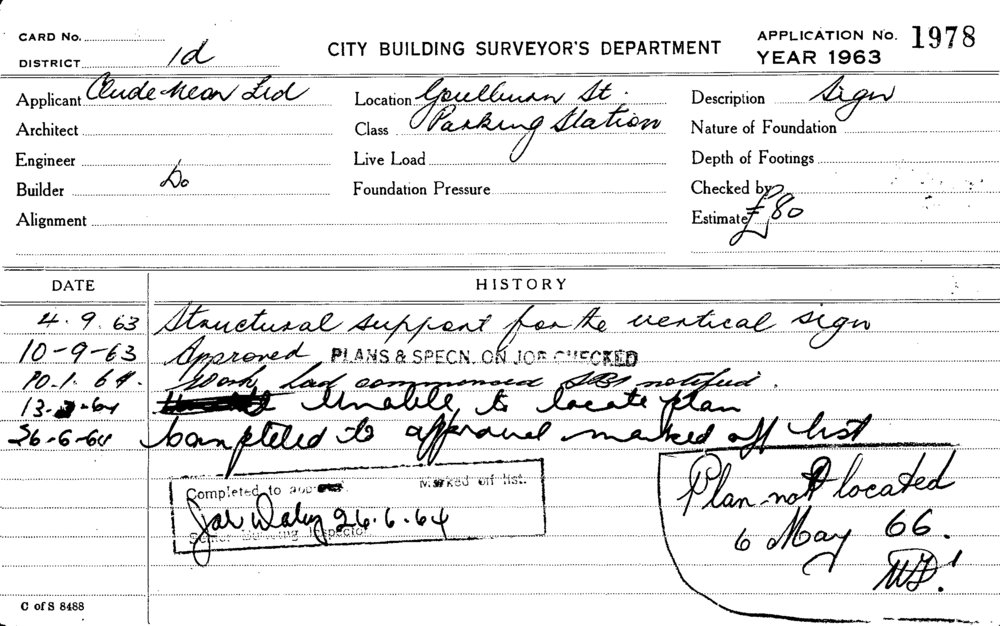 CARD No.
DISTRICT 1d
CITY BUILDING SURVEYOR'S DEPARTMENT
APPLICATION No. 1978
YEAR 1963
Applicant Claude Neon Ltd
Location Goulburn St.
Description Sign
Architect
Class Parking Station
Nature of Foundation
Engineer
Live Load
Depth of Footings
Builder Do
Foundation Pressure
Checked by
Alignment
Estimate £80
DATE HISTORY
4.9.63 Structural support for the vertical sign
10-9-63 Approved PLANS & SPECN. ON JOB CHECKED
10.1.64. Work had commenced notified.
Unable to locate plan
26-6-64 Completed to approval marked off list
Completed to Marked off list.
26.6.64
Senior Building Inspector
Plan not located
6 May 66.
C of S 8488